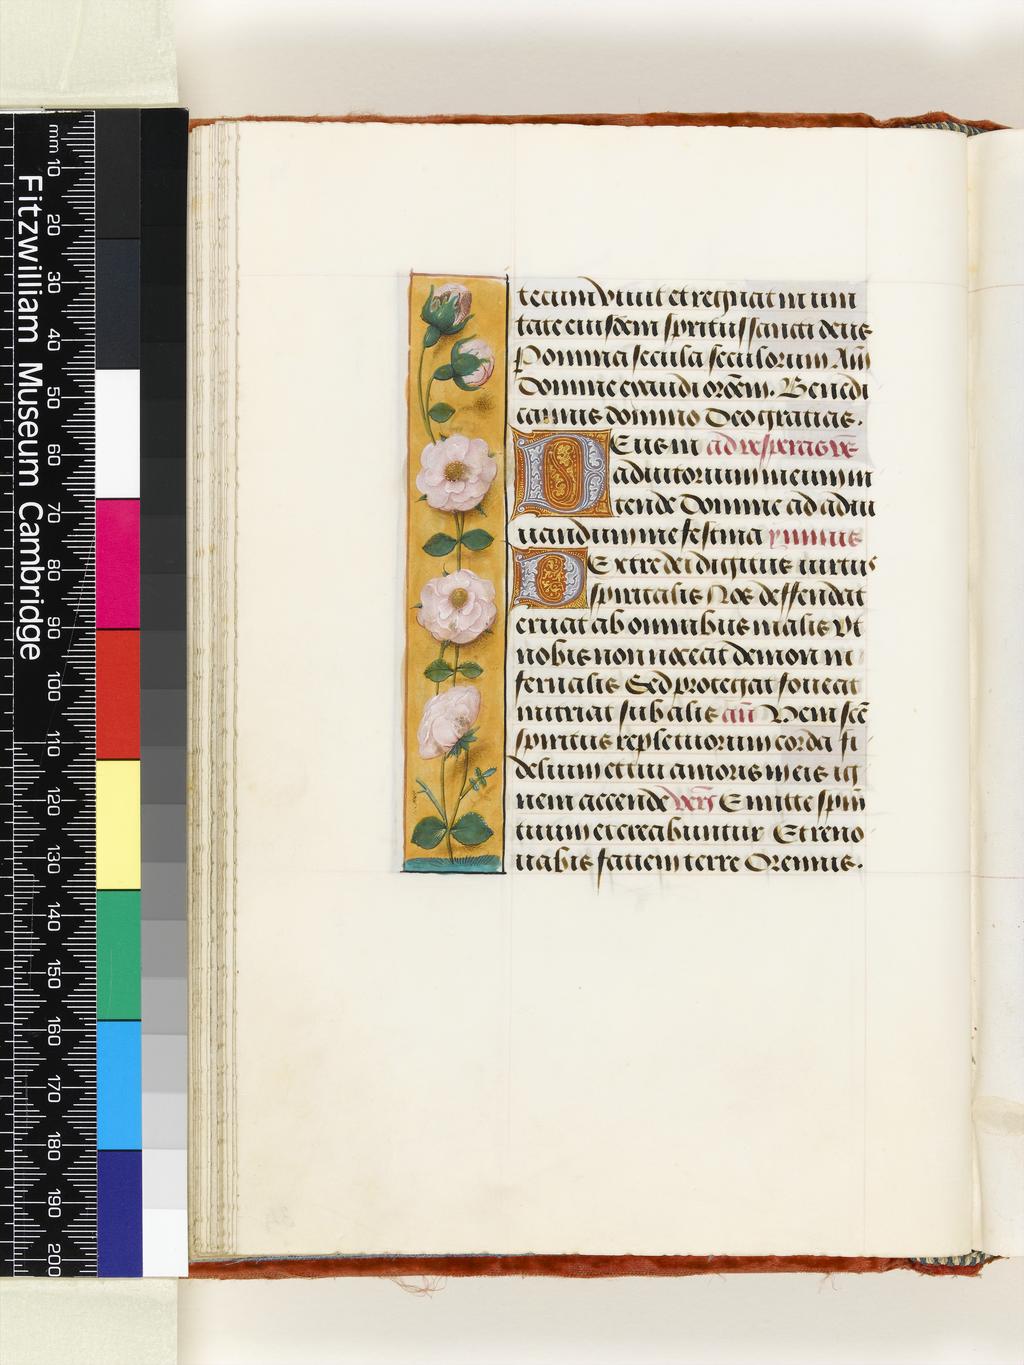 mm 10 20 30 40 50 60 70 80 90 100 110 120 130 140 150 160 170 180 190 200
Fitzwilliam Museum Cambridge
tecum viuit et regnat in uni
tate eiusdem spiritus sancti deus
Per omnia secula seculorum Am̄
Domine exaudi orōem. Benedi
camus domino Deo gratias.
Deus in ad vesperas vs̄
adiutorium meum in
tende Domine ad adiu
uandum me festina ymnus
Dextre dei digitus uirtus
spiritalis Nos deffendat
eruat ab omnibus malis Vt
nobis non noceat demon in
fernalis Sed protegat foueat
nutriat sub alis an̄ Veni scē
spiritus reple tuorum corda fi
delium et tui amoris in eis ig
nem accende vers̄ Emitte spm̄
tuum et creabuntur Et reno
uabis faciem terre Oremus.